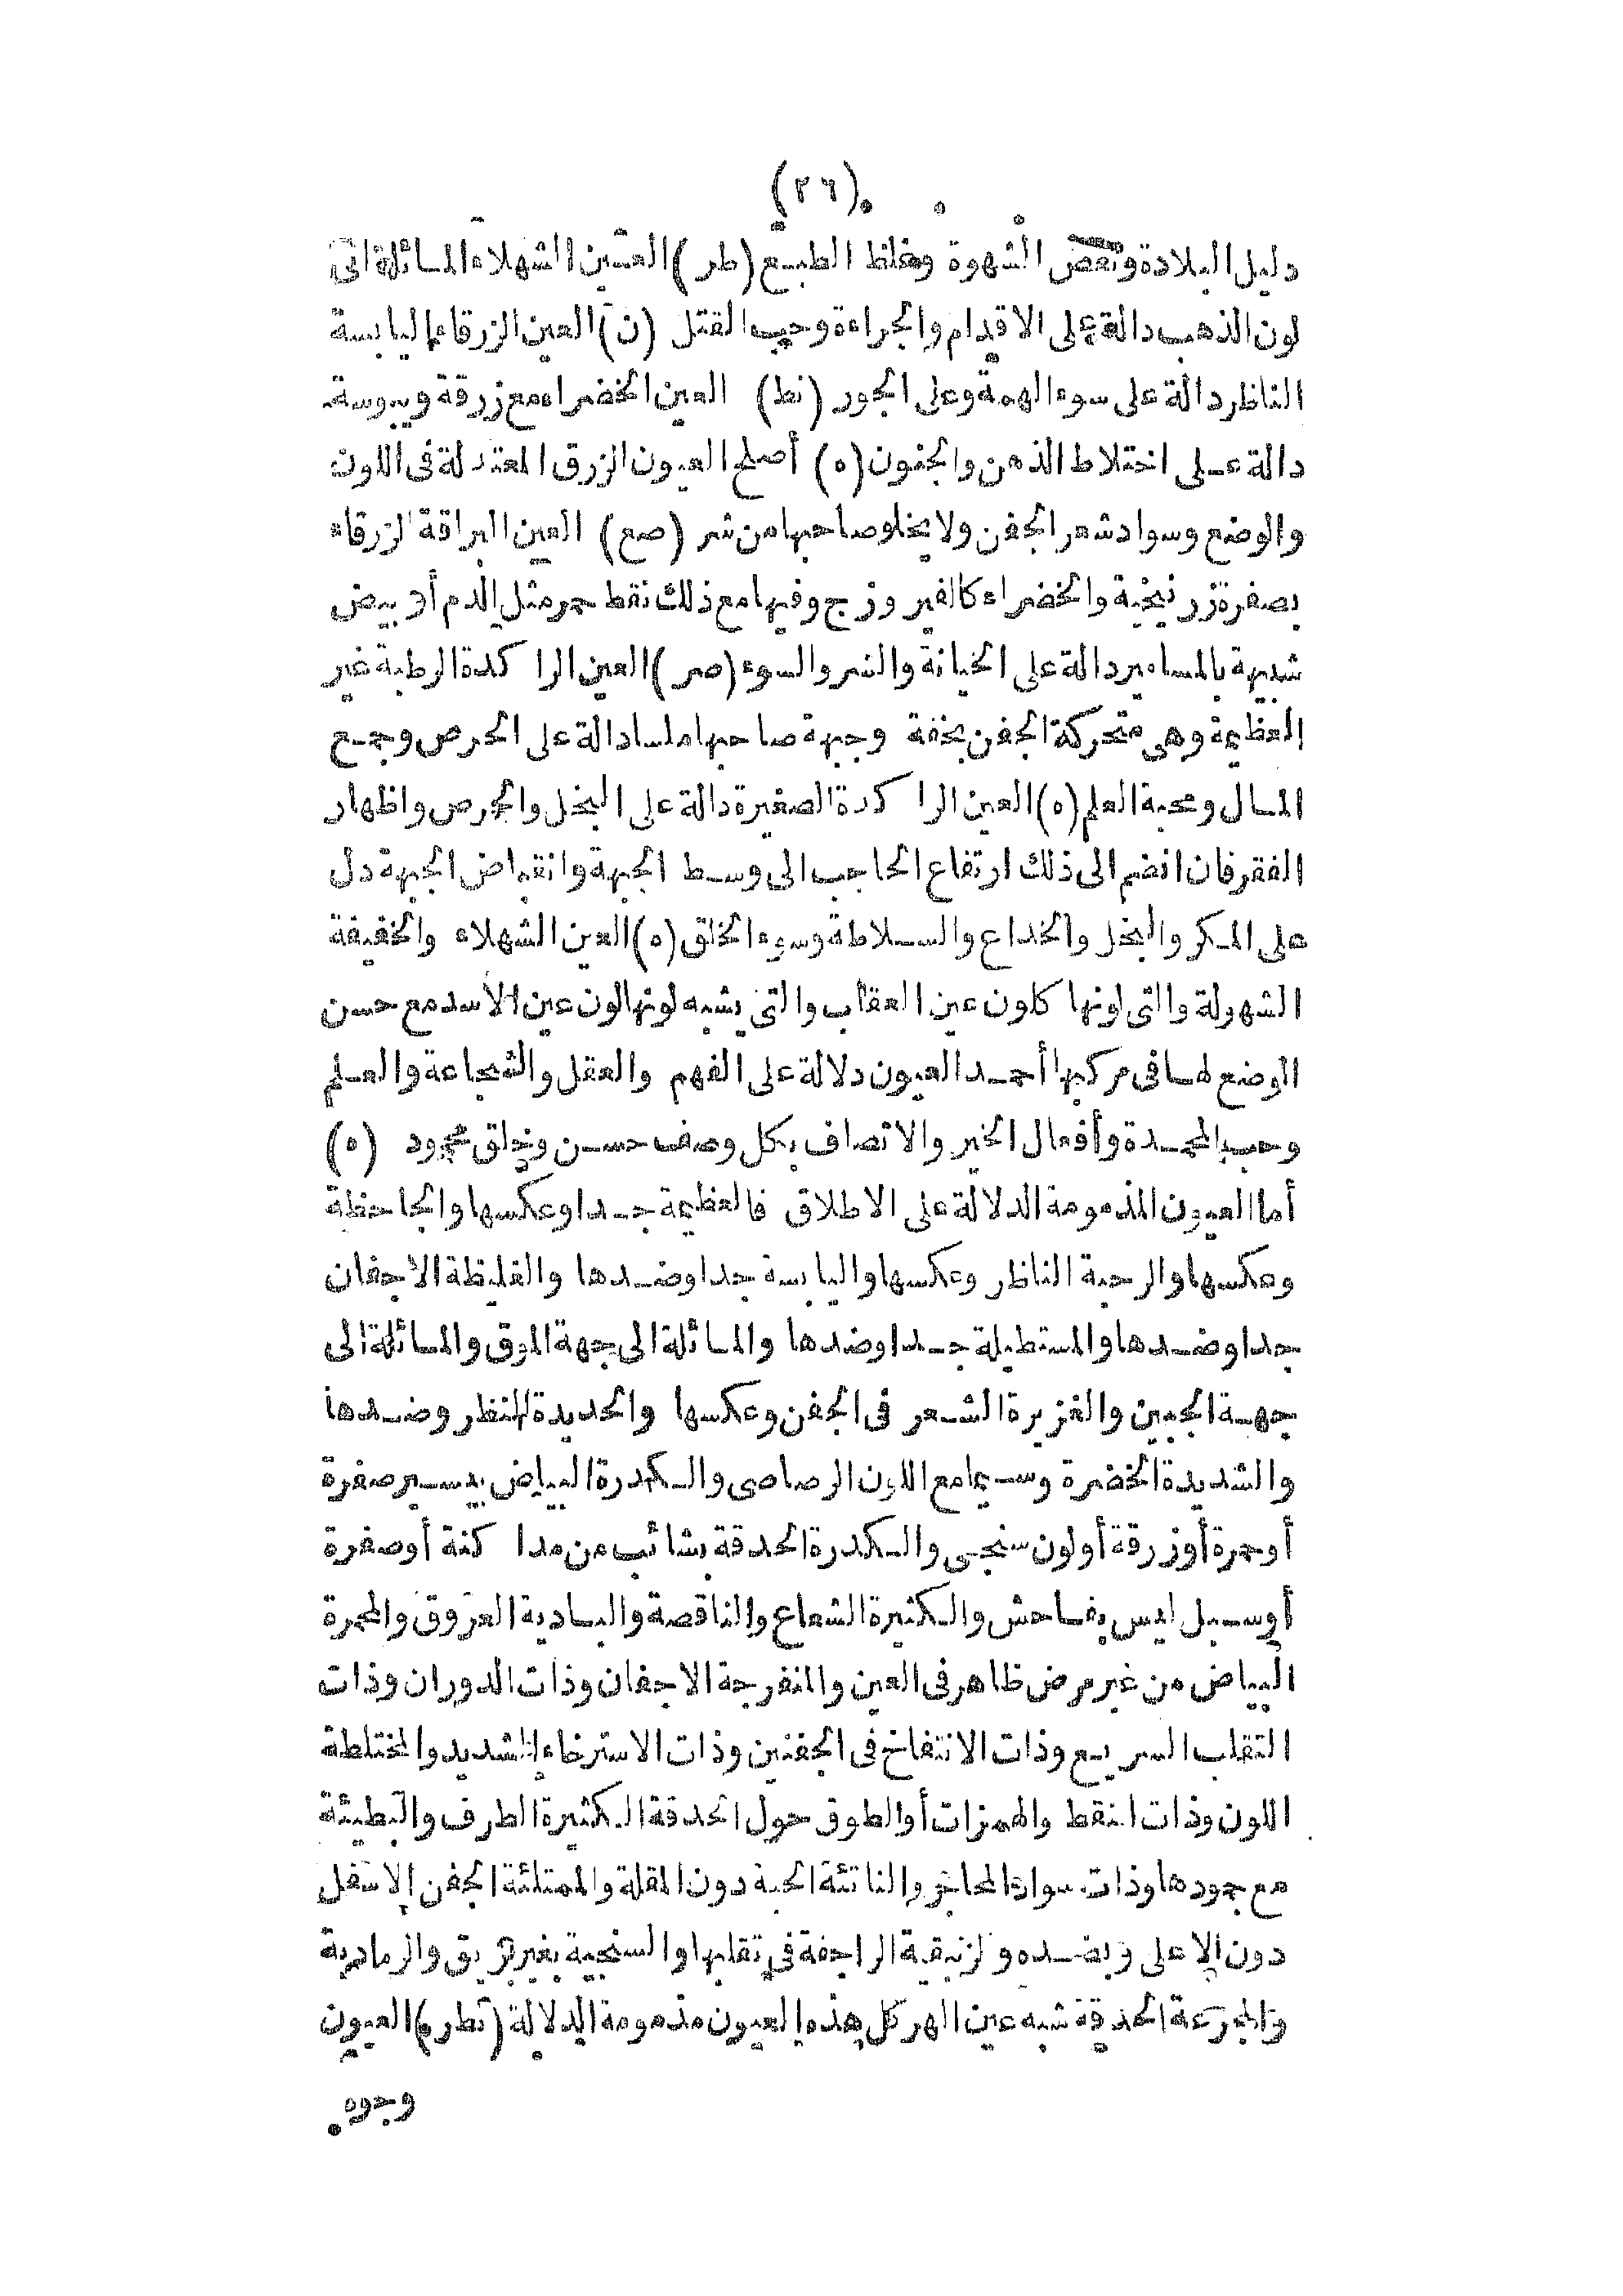 (٢٦)
دليل البلادة ونقص الشهوة وغلظ الطبع (طر) العين الشهلاء المائلة الى
لون الذهب دالة على الاقدام والجراءة وحب القتل (ن) العين الزرقاء اليابسة
الناظر دالة على سوء الهمة وعلى الجور (نط) العين الخضراء مع زرقة ويبوسة
دالة على اختلاط الذهن والجنون (ه) أصلح العيون الزرق المعتدلة فى اللون
والوضع وسواد شعر الجفن ولا يخلو صاحبها من شر (صع) العين البراقة الزرقاء
بصفرة زرنيخية والخضراء كالفيروزج وفيها مع ذلك نقط حمر مثل الدم أو بيض
شبيهة بالمسامير دالة على الخيانة والشر والسوء (صر) العين الراكدة الرطبة غير
العظيمة وهى متحركة الجفن بخفة وجبهة صاحبها ملسا دالة على الحرص وجمع
المال ومحبة العلم (ه) العين الراكدة الصغيرة دالة على البخل والحرص واظهار
الفقر فان انضم الى ذلك ارتفاع الحاجب الى وسط الجبهة وانقباض الجبهة دل
على المكر والبخل والخداع والسلاطة وسوء الخلق (ه) العين الشهلاء والخفيفة
الشهولة والتى لونها كلون عين العقاب والتى يشبه لونها لون عين الاسد مع حسن
الوضع لها فى مركبها أحمد العيون دلالة على الفهم والعقل والشجاعة والعلم
وحب المحمدة وأفعال الخير والاتصاف بكل وصف حسن وخلق محمود (ه)
أما العيون المذمومة الدلالة على الاطلاق فالعظيمة جدا وعكسها والجاحظة
وعكسها والرحبة الناظر وعكسها واليابسة جدا وضدها والغليظة الاجفان
جدا وضدها والمستطيلة جدا وضدها والمائلة الى جهة الموق والمائلة الى
جهة الجبين والغزيرة الشعر فى الجفن وعكسها والحديدة المنظر وضدها
والشديدة الخضرة وسيما مع اللون الرصاصى والكدرة البياض بيسير صفرة
أو حمرة أو زرقة أو لون سنجبى والكدرة الحدقة بشائب من مدا كنة أو صفرة
أو سبل ليس بفاحش والكثيرة الشعاع والناقصة والبادية العروق والمحمرة
البياض من غير مرض ظاهر فى العين والمنفرجة الاجفان وذات الدوران وذات
التقلب السريع وذات الانتفاخ فى الجفنين وذات الاسترخاء الشديد والمختلطة
اللون وذات النقط والهمزات أو الطوق حول الحدقة الكثيرة الطرف والبطيئة
مع جمودها وذات سواد المحاجر والناتئة الحبة دون المقلة والممتلئة الجفن الاسفل
دون الاعلى وبضده والزنبقية الراجفة فى تقلبها والسنجبية بغير بريق والرمادية
والمجزعة الحدقة شبه عين الهر كل هذه العيون مذمومة الدلالة العيون
وجوه